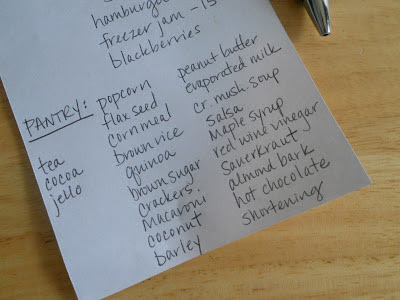 hamburger
freezer jam - 15
blackberries
PANTRY:
tea
cocoa
jello
popcorn
flax seed
cornmeal
brown rice
quinoa
brown sugar
crackers
Macaroni
coconut
barley
peanut butter
evaporated milk
cr. mush. soup
salsa
Maple syrup
red wine vinegar
sauerkraut
almond bark
hot chocolate
shortening